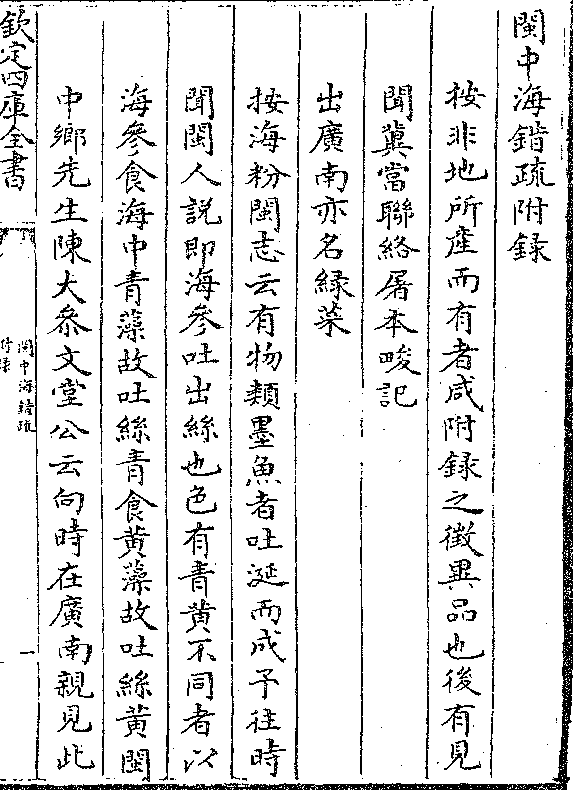 閩中海錯疏附録
按非地所産而有者咸附録之徴異品也後有見
聞冀當聯絡屠本畯記
出廣南亦名緑菜
按海粉閩志云有物類墨魚者吐涎而成予往時
聞閩人説即海參吐出絲也色有青黄不同者以
海參食海中青藻故吐絲青食黄藻故吐絲黄閩
中鄉先生陳大叅文堂公云向時在廣南親見此
欽定四庫全書
閩中海錯疏
附録
一